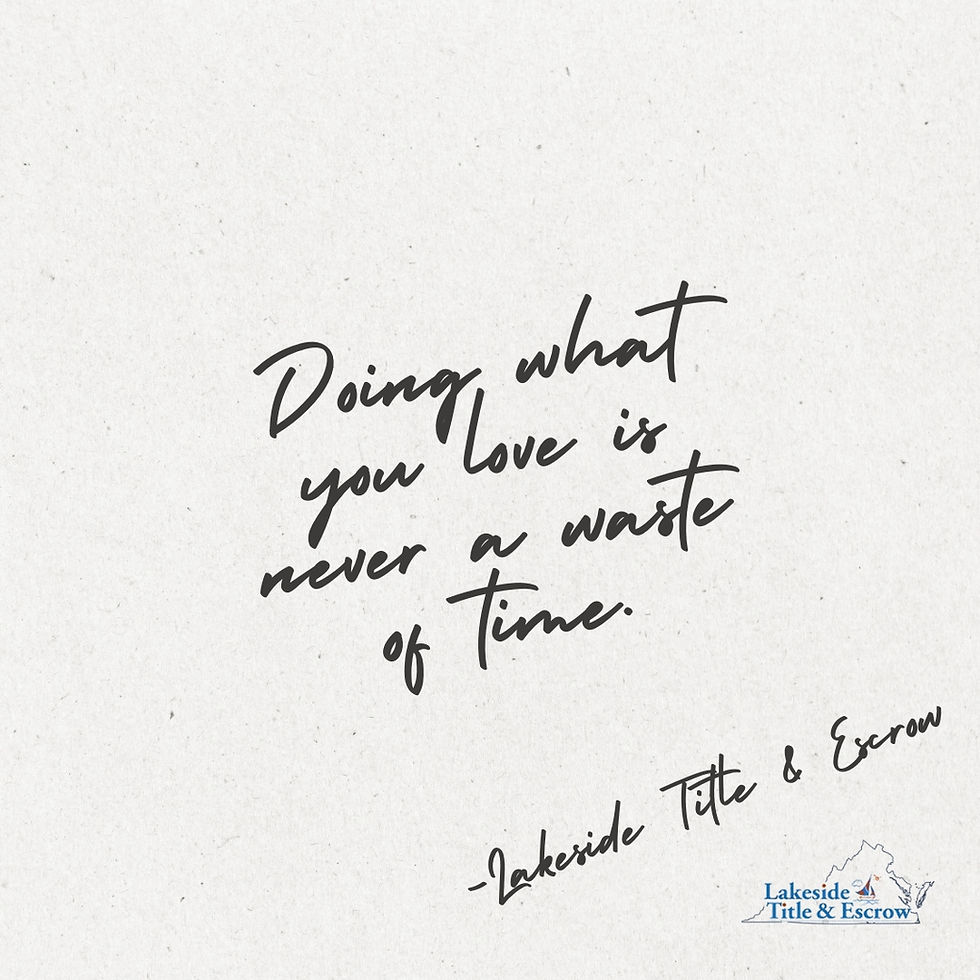 Doing what
you love is
never a waste
of time.
-Lakeside Title & Escrow
Lakeside
Title & Escrow